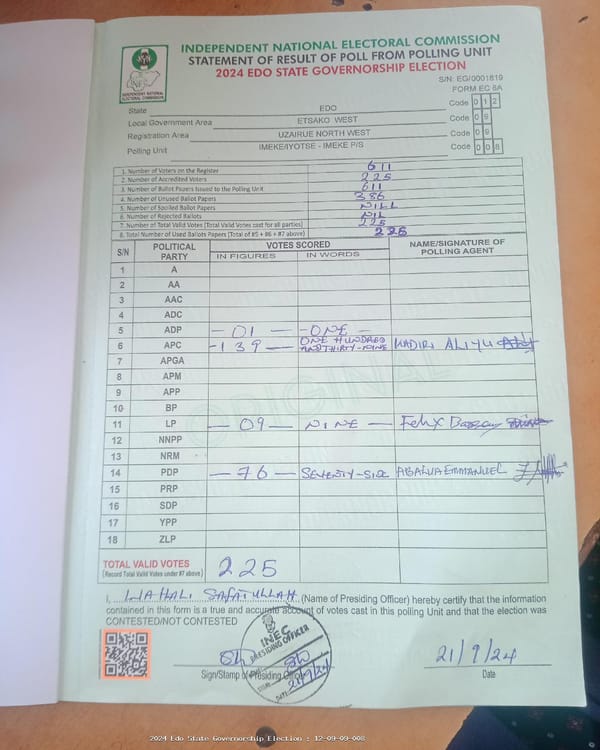 INDEPENDENT NATIONAL ELECTORAL COMMISSION
STATEMENT OF RESULT OF POLL FROM POLLING UNIT
2024 EDO STATE GOVERNORSHIP ELECTION
INDEPENDENT NATIONAL ELECTORAL COMMISSION
S/N: EG/0001819
FORM EC 8A
State EDO Code 0 1 2
Local Government Area ETSAKO WEST Code 0 9
Registration Area UZAIRUE NORTH WEST Code 0 9
Polling Unit IMEKE/IYOTSE - IMEKE P/S Code 0 0 8
1. Number of Voters on the Register 611
2. Number of Accredited Voters 225
3. Number of Ballot Papers Issued to the Polling Unit 611
4. Number of Unused Ballot Papers 386
5. Number of Spoiled Ballot Papers NILL
6. Number of Rejected Ballots NIL
7. Number of Total Valid Votes (Total Valid Votes cast for all parties) 225
8. Total Number of Used Ballots Papers (Total of #5 + #6 + #7 above) 225
S/N POLITICAL PARTY VOTES SCORED NAME/SIGNATURE OF POLLING AGENT
IN FIGURES IN WORDS
1 A
2 AA
3 AAC
4 ADC
5 ADP - 01 - - ONE -
6 APC - 139 - ONE HUNDRED AND THIRTY-NINE MADIRI ALIYU
7 APGA
8 APM
9 APP
10 BP
11 LP - 09 - NINE - Felix
12 NNPP
13 NRM
14 PDP - 76 - SEVENTY-SIX EMMANUEL
15 PRP
16 SDP
17 YPP
18 ZLP
ORIGINAL
TOTAL VALID VOTES 225
(Record Total Valid Votes under #7 above)
I, SAFATULLAH (Name of Presiding Officer) hereby certify that the information
contained in this form is a true and accurate account of votes cast in this polling Unit and that the election was
CONTESTED/NOT CONTESTED
INEC
PRESIDING OFFICER
SIGN
DATE: 21/9/24
21/9/24
Sign/Stamp of Presiding Officer Date
2024 Edo State Governorship Election : 12-09-09-008